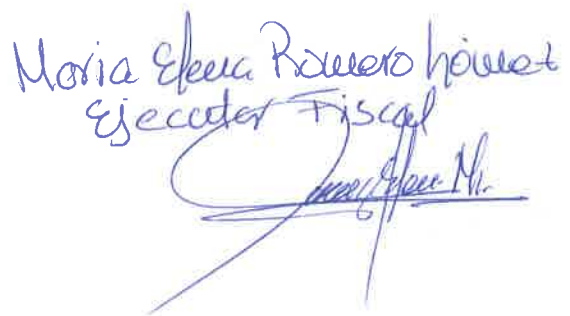 Maria Elena Romero Gómez
Ejecutor Fiscal